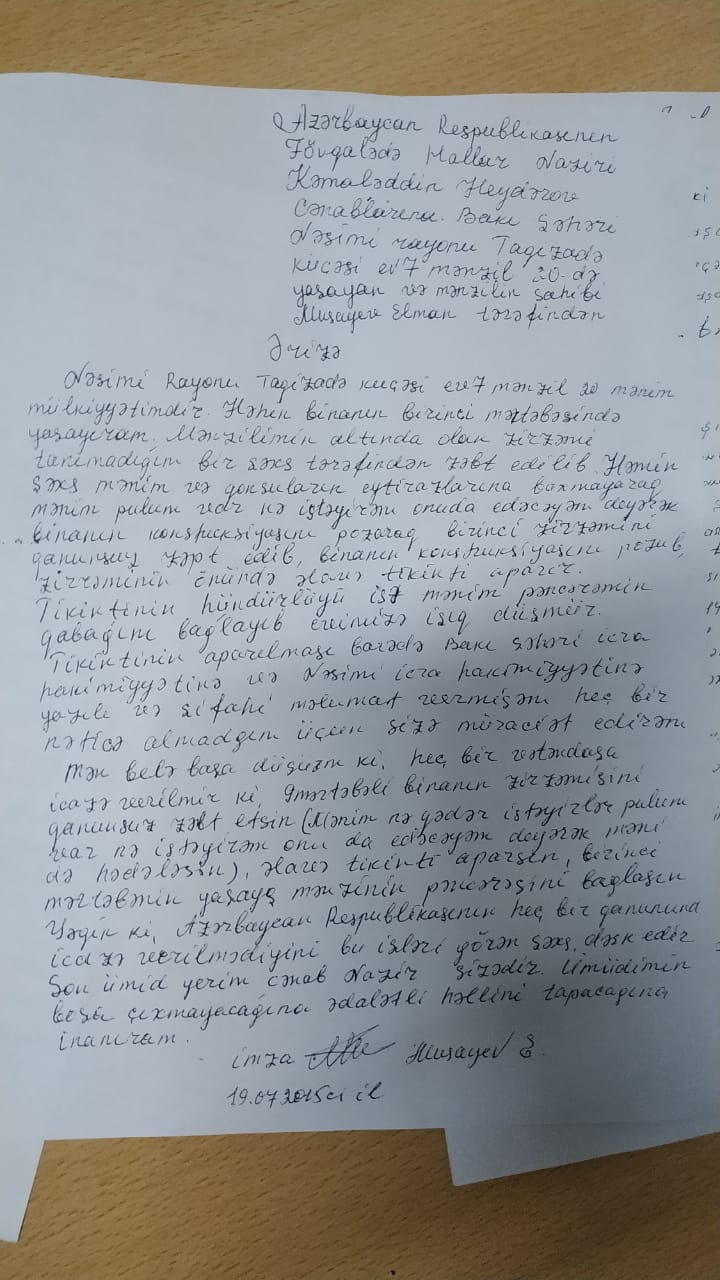 Azərbaycan Respublikasının
Fövqaladə Hallar Naziri
Kəmaləddin Heydərov
Cənablarına. Bakı Şəhəri
Nəsimi rayonu Tagizadə
küçəsi ev 7 mənzil 20-də
yaşayan və mənzilin sahibi
Musayev Elman tərəfindən
Ərizə
Nəsimi Rayonu Tagizadə küçəsi ev 7 mənzil 20 mənim
mülkiyyətimdir. Həmin binanın birinci mərtəbəsində
yaşayıram. Mənzilimin altında olan zirzəmi
tanımadığım bir şəxs tərəfindən zəbt edilib. Həmin
şəxs mənim və qonşuların eytirazlarına baxmayaraq
mənim pulum var nə istəyirəm onuda edəcəyəm deyərək
binanın konstruksiyasını pozaraq birinci zirzəmini
qanunsuz zəpt edib, binanın konstruksiyasını pozub,
zirzəminin önündə əlavə tikinti aparır.
Tikintinin hündürlüyü isə mənim pəncərəmin
qabağını bağlayıb evimizə işıq düşmür.
Tikintinin aparılması barədə Bakı Şəhəri icra
hakimiyyətinə və Nəsimi icra hakimiyyətinə
yazılı və şifahi məlumat vermişəm heç bir
nəticə almadığım üçün sizə müraciət edirəm
Mən belə başa düşürəm ki, heç bir vətəndaşa
icazə verilmir ki, 9mərtəbəli binanın zirzəmisini
qanunsuz zəbt etsin (Mənim nə qədər istəyirlər pulum
var nə istəyirəm onu da edəcəyəm deyərək məni
də hədələsin), əlavə tikinti aparsın, birinci
mərtəbənin yaşayış mənzinin pəncərəsini bağlasın
Yəqin ki, Azərbaycan Respublikasının heç bir qanununa
icazə verilmədiyini bu işləri görən şəxs, dərk edir
Son ümid yerim cənab Nazir sizədir. Ümüdimin
boşa çıxmayacağına ədalətli həllini tapacağına
inanıram.
imza Musayev E.
19.07.2015ci il